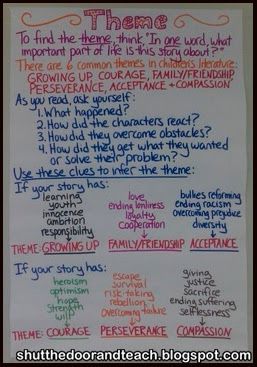 Theme
To find the theme, think, "In one word, what
important part of life is this story about?"
There are 6 common themes in children's literature:
GROWING UP, COURAGE, FAMILY/FRIENDSHIP,
PERSEVERANCE, ACCEPTANCE + COMPASSION
As you read, ask yourself:
1. What happened?
2. How did the characters react?
3. How did they overcome obstacles?
4. How did they get what they wanted
or solve their problem?
Use these clues to infer the theme:
If your story has:
learning
youth
innocence
ambition
responsibility
love
ending loneliness
loyalty
cooperation
bullies reforming
ending racism
overcoming prejudice
diversity
THEME: GROWING UP FAMILY/FRIENDSHIP ACCEPTANCE
If your story has:
heroism
optimism
hope
strength
will
escape
survival
risk-taking
rebellion
overcoming failure
giving
justice
sacrifice
ending suffering
selflessness
THEME: COURAGE PERSEVERANCE COMPASSION
shutthedoorandteach.blogspot.com